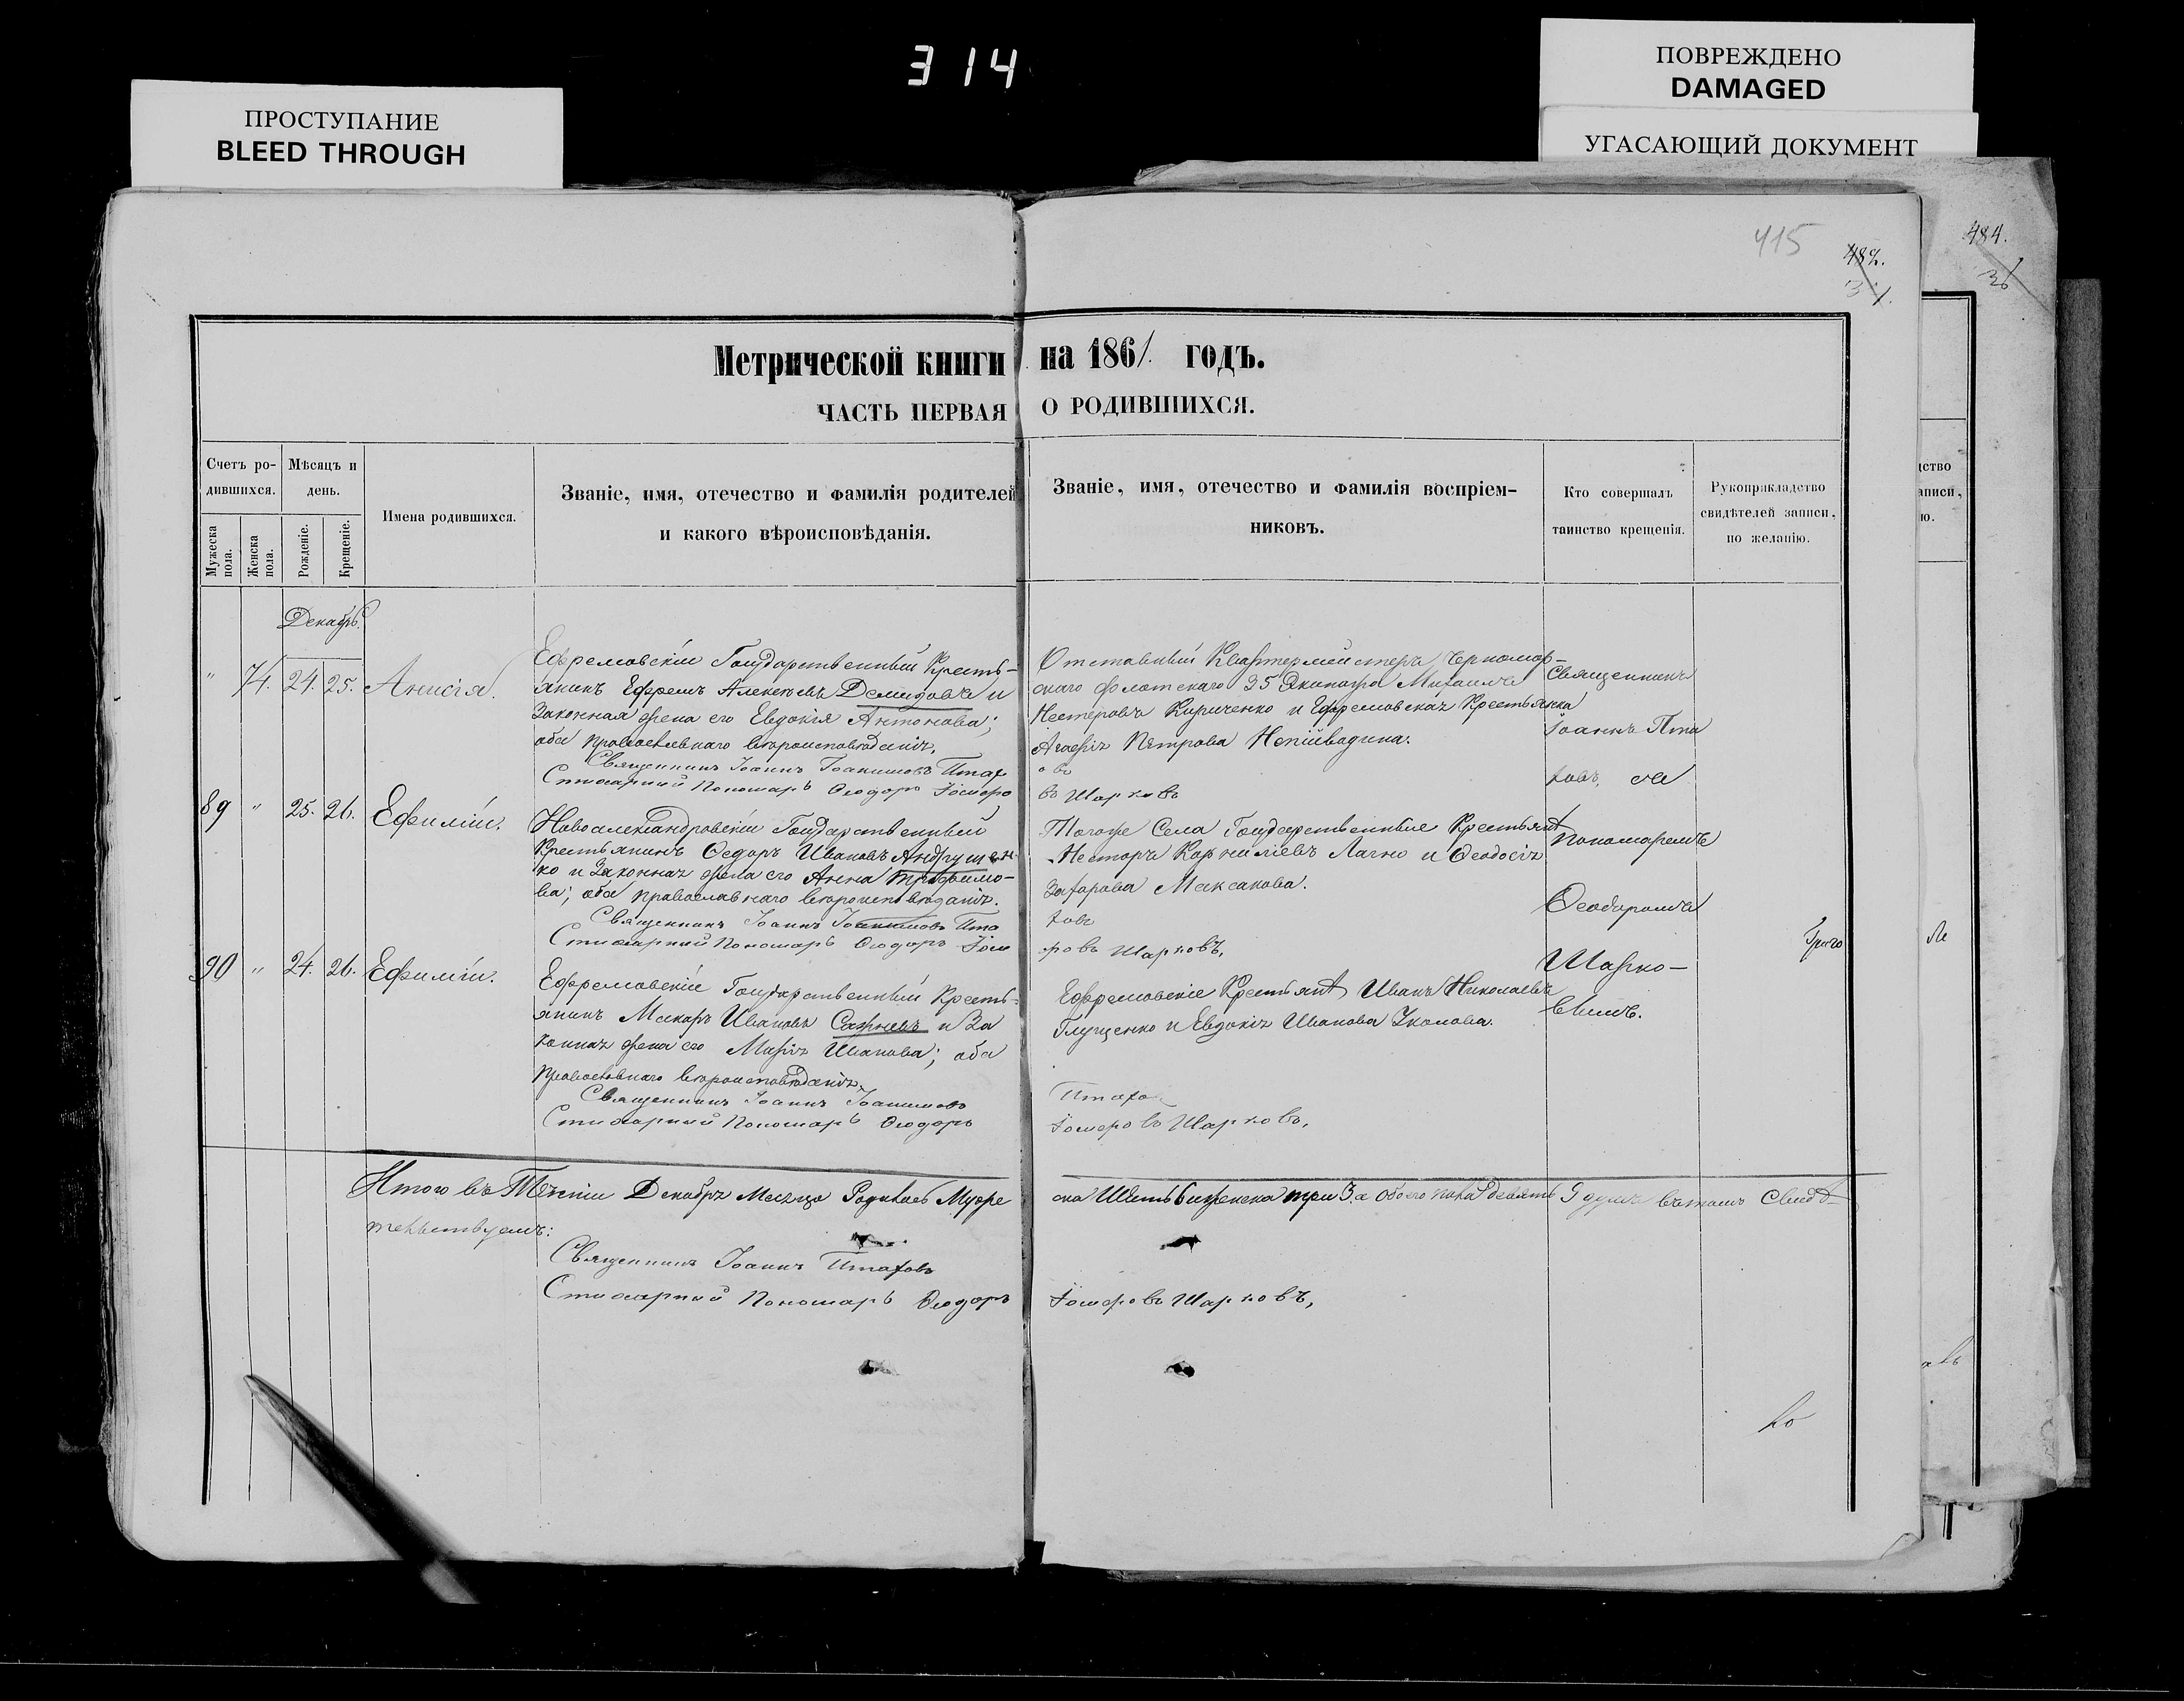 314
ПРОСТУПАНИЕ
BLEED THROUGH
ПОВРЕЖДЕНО
DAMAGED
УГАСАЮЩИЙ ДОКУМЕНТ
415
484.
Метрической книги на 1861. годъ.
ЧАСТЬ ПЕРВАЯ О РОДИВШИХСЯ.
Счетъ ро-
дившихся.
Мужеска пола.
Женска пола.
Мѣсяцъ и
день.
Рожденіе.
Крещеніе.
Имена родившихся.
Званіе, имя, отечество и фамилія родителей
и какого вѣроисповѣданія.
Званіе, имя, отечество и фамилія воспріем-
никовъ.
Кто совершалъ
таинство крещенія.
Рукоприкладство
свидѣтелей записи,
по желанію.
Декабрь.
" 74. 24. 25. Анисія.
Ефремовскій Государственный Кресть-
янинъ Ефремъ Алексѣевъ Демидовъ и
Законная жена его Евдокія Антонова;
оба православнаго вѣроисповѣданія.
Священникъ Іоаннъ Іоакимовъ Птахо
въ
Стихарный Пономарь Ѳеодоръ Іосифо
въ Шарковъ
Отставный Квартермейстеръ Черномор-
скаго флотскаго 35 Экипажа Михаилъ
Нестеровъ Кириченко и Ефремовская Крестьянка
Агафія Петрова Непійвадина.
89 " 25. 26. Ефимій.
Новоалександровскій Государственный
Крестьянинъ Ѳедоръ Ивановъ Андрушен-
ко и Законная жена его Анна Трофимо-
ва; оба православнаго вѣроисповѣданія.
Священникъ Іоаннъ Іоакимовъ Пта
ховъ
Стихарный Пономарь Ѳеодоръ Іоси
фовъ Шарковъ,
Тогоже Села Государственные Крестьяне
Несторъ Корниліевъ Лагно и Ѳеодосія
Захарова Максакова.
90 " 24. 26. Ефимій.
Ефремовскій Государственный Кресть-
янинъ Макаръ Ивановъ Сажневъ и За
конная жена его Марія Иванова; оба
православнаго вѣроисповѣданія.
Священникъ Іоаннъ Іоакимовъ Птахо
Стихарный Пономарь Ѳеодоръ Іосифовъ Шарковъ,
Ефремовскіе Крестьяне Иванъ Николаевъ
Глущенко и Евдокія Иванова
Священникъ
Іоаннъ Пта
ховъ, съ
Пономаремъ
Ѳеодоромъ
Шарко-
вымъ.
Григо
Итого въ Теченіи Декабря Месяца Родилось Муже
ска Шесть 6 и женска три 3. а обоего пола девять 9 душъ въ томъ Свидѣ-
тельствуемъ:
Священникъ Іоаннъ Птаховъ
Стихарный Пономарь Ѳеодоръ Іосифовъ Шарковъ,